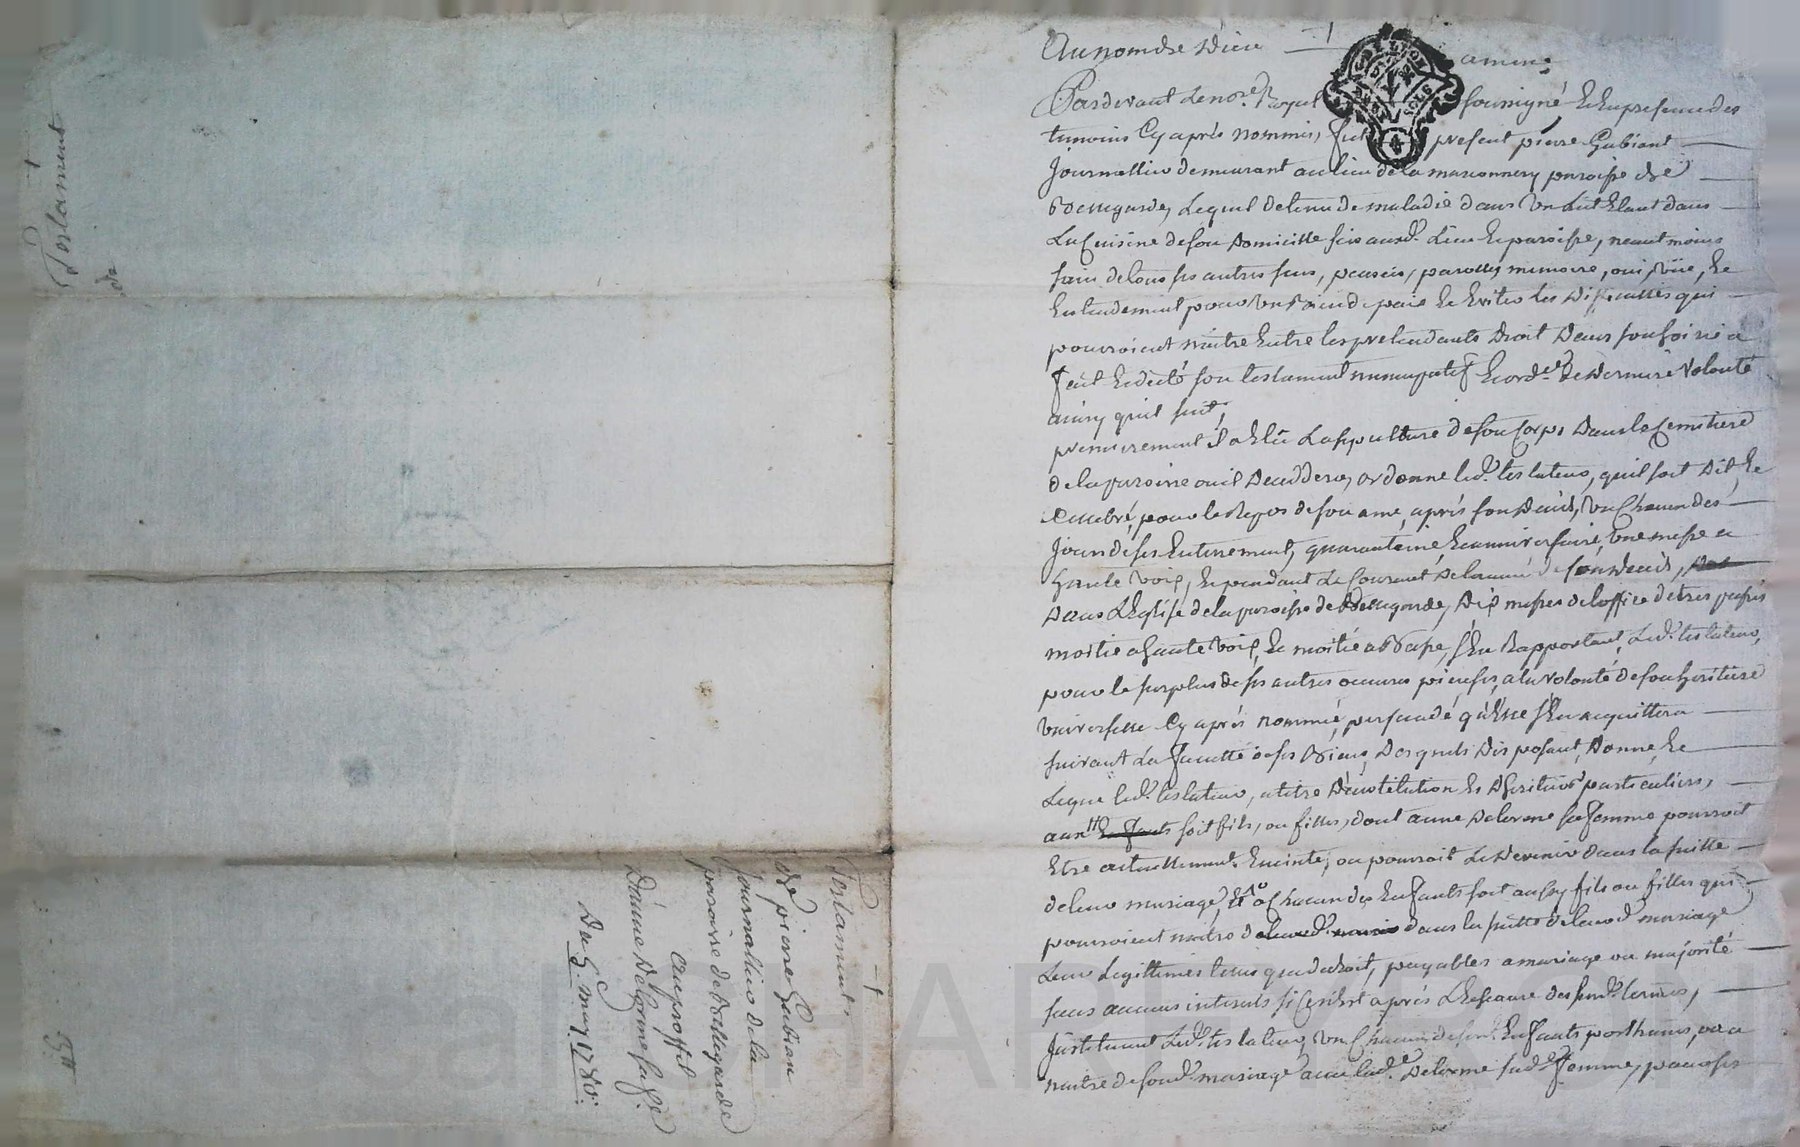 Testament
de
Testament
de pierre Gubian
Journallier de la
paroisse de Bellegarde
Au proffit
D'anne Delorme sa fe
Du 5e may 1780.
Au nom de Dieu amen.
Pardevant le no.re Royal soussigné Et En presence des
temoins Cy aprés nommés, fut present pierre Gubiant
Journallier demeurant au lieu de la maronnery paroisse de
Bellegarde, Lequel detenu de maladie dans Un Lit Etant dans
La Cuisine de son Domicille sis aud. Lieu Et paroisse, neantmoins
sain de tous ses autres sens, pensées, parolles, memoire, oui, Vüe, Et
Entendement pour Un Bien de paix Et Eviter les Difficultés qui
pourroient naitre Entre les pretendants Droit Dans son hoirie a
fait Et dicté son testament nuncupatif Et ord.ce de Derniere Volonté
ainsy quil suit,
premierement Il a Elû La sepulture de son Corps Dans le Cemitiere
de la paroisse ou il Decedera, ordonne led. testateur, quil soit Dit, Et
Celebré, pour le Repos de son ame, aprés son Decés, Un Chacun des
Jours de ses Enterrement, quarantaine, Et anniversaire, Une messe a
haute Voix, Et pendant Le Courant de l'année de son Decés,
Dans L'Eglise de la paroisse de Bellegarde, Dix messes de l'office de trepassés
moitié a haute Voix, Et moitié a Basse, s'En Rapportant, Led. testateur,
pour le surplus de ses autres oeuvres pieuses, a la Volonté de son heritiere
Universelle Cy aprés nommée, persuadé qu'Elle s'En acquittera
suivant La faculté de ses Biens, Desquels Disposant, Donne, Et
Legue led. testateur, a titre D'institution Et D'heritiers particuliers,
aux Enfants soit fils, ou filles, dont anne Delorme sa femme pourroit
Etre actuellement Enceinte, ou pourroit Le Devenir dans la suitte
de leur mariage, Et a Chacun des Enfants soit aussy fils ou filles qui
pourroient naitre dans la suitte de leurd. mariage
Leur Legittimes telles que de droit, payables a mariage ou majorité
sans aucuns interests si Ce n'est aprés L'Echeance desd. termes,
Instituant Led. testateur, Un Chacun de sesd. Enfants posthumes, ou a
naitre de sond. mariage avec lad. Delorme sad. femme, pour ses